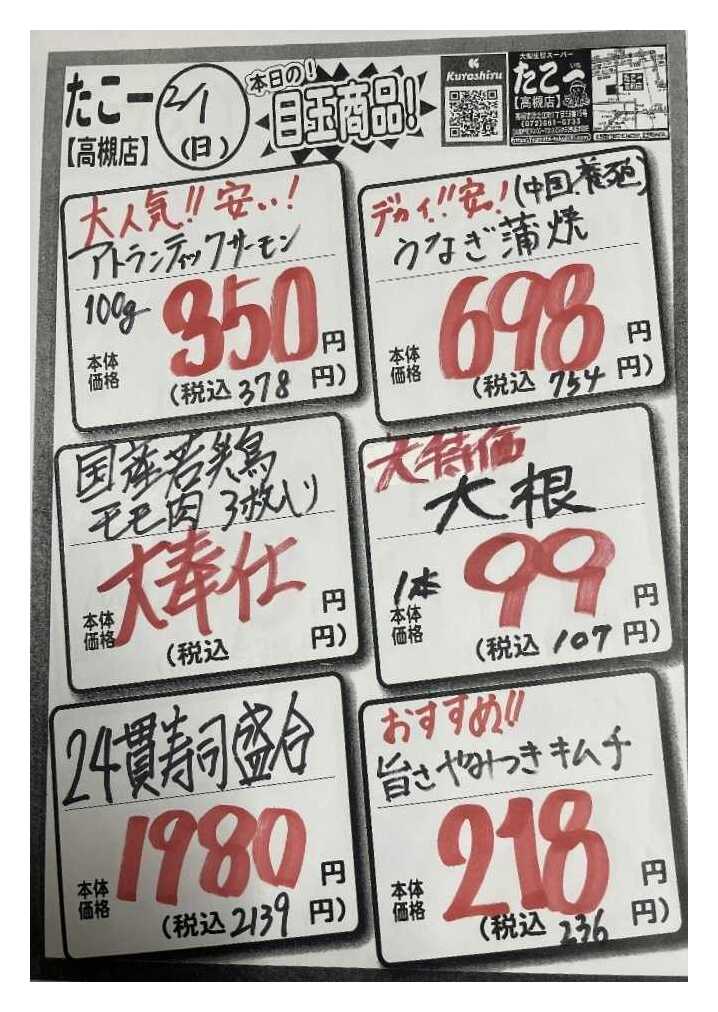 たこ一
【高槻店】
2/1
(日)
本日の!
目玉商品!
Kurashiru
大阪生野スーパー
たこ一
【高槻店】
大人気!! 安い!
アトランティックサーモン
100g
350
本体
価格
円
(税込 378 円)
デカイ!! 安! (中国、養殖)
うなぎ蒲焼
698
本体
価格
円
(税込 754 円)
国産若美鳥
モモ肉 3枚入り
大奉仕
本体
価格
円
(税込 円)
大特価
大根
1本
99
本体
価格
円
(税込 107 円)
24貫寿司盛合
1980
本体
価格
円
(税込 2139 円)
おすすめ!!
旨さやみつきキムチ
218
本体
価格
円
(税込 236 円)